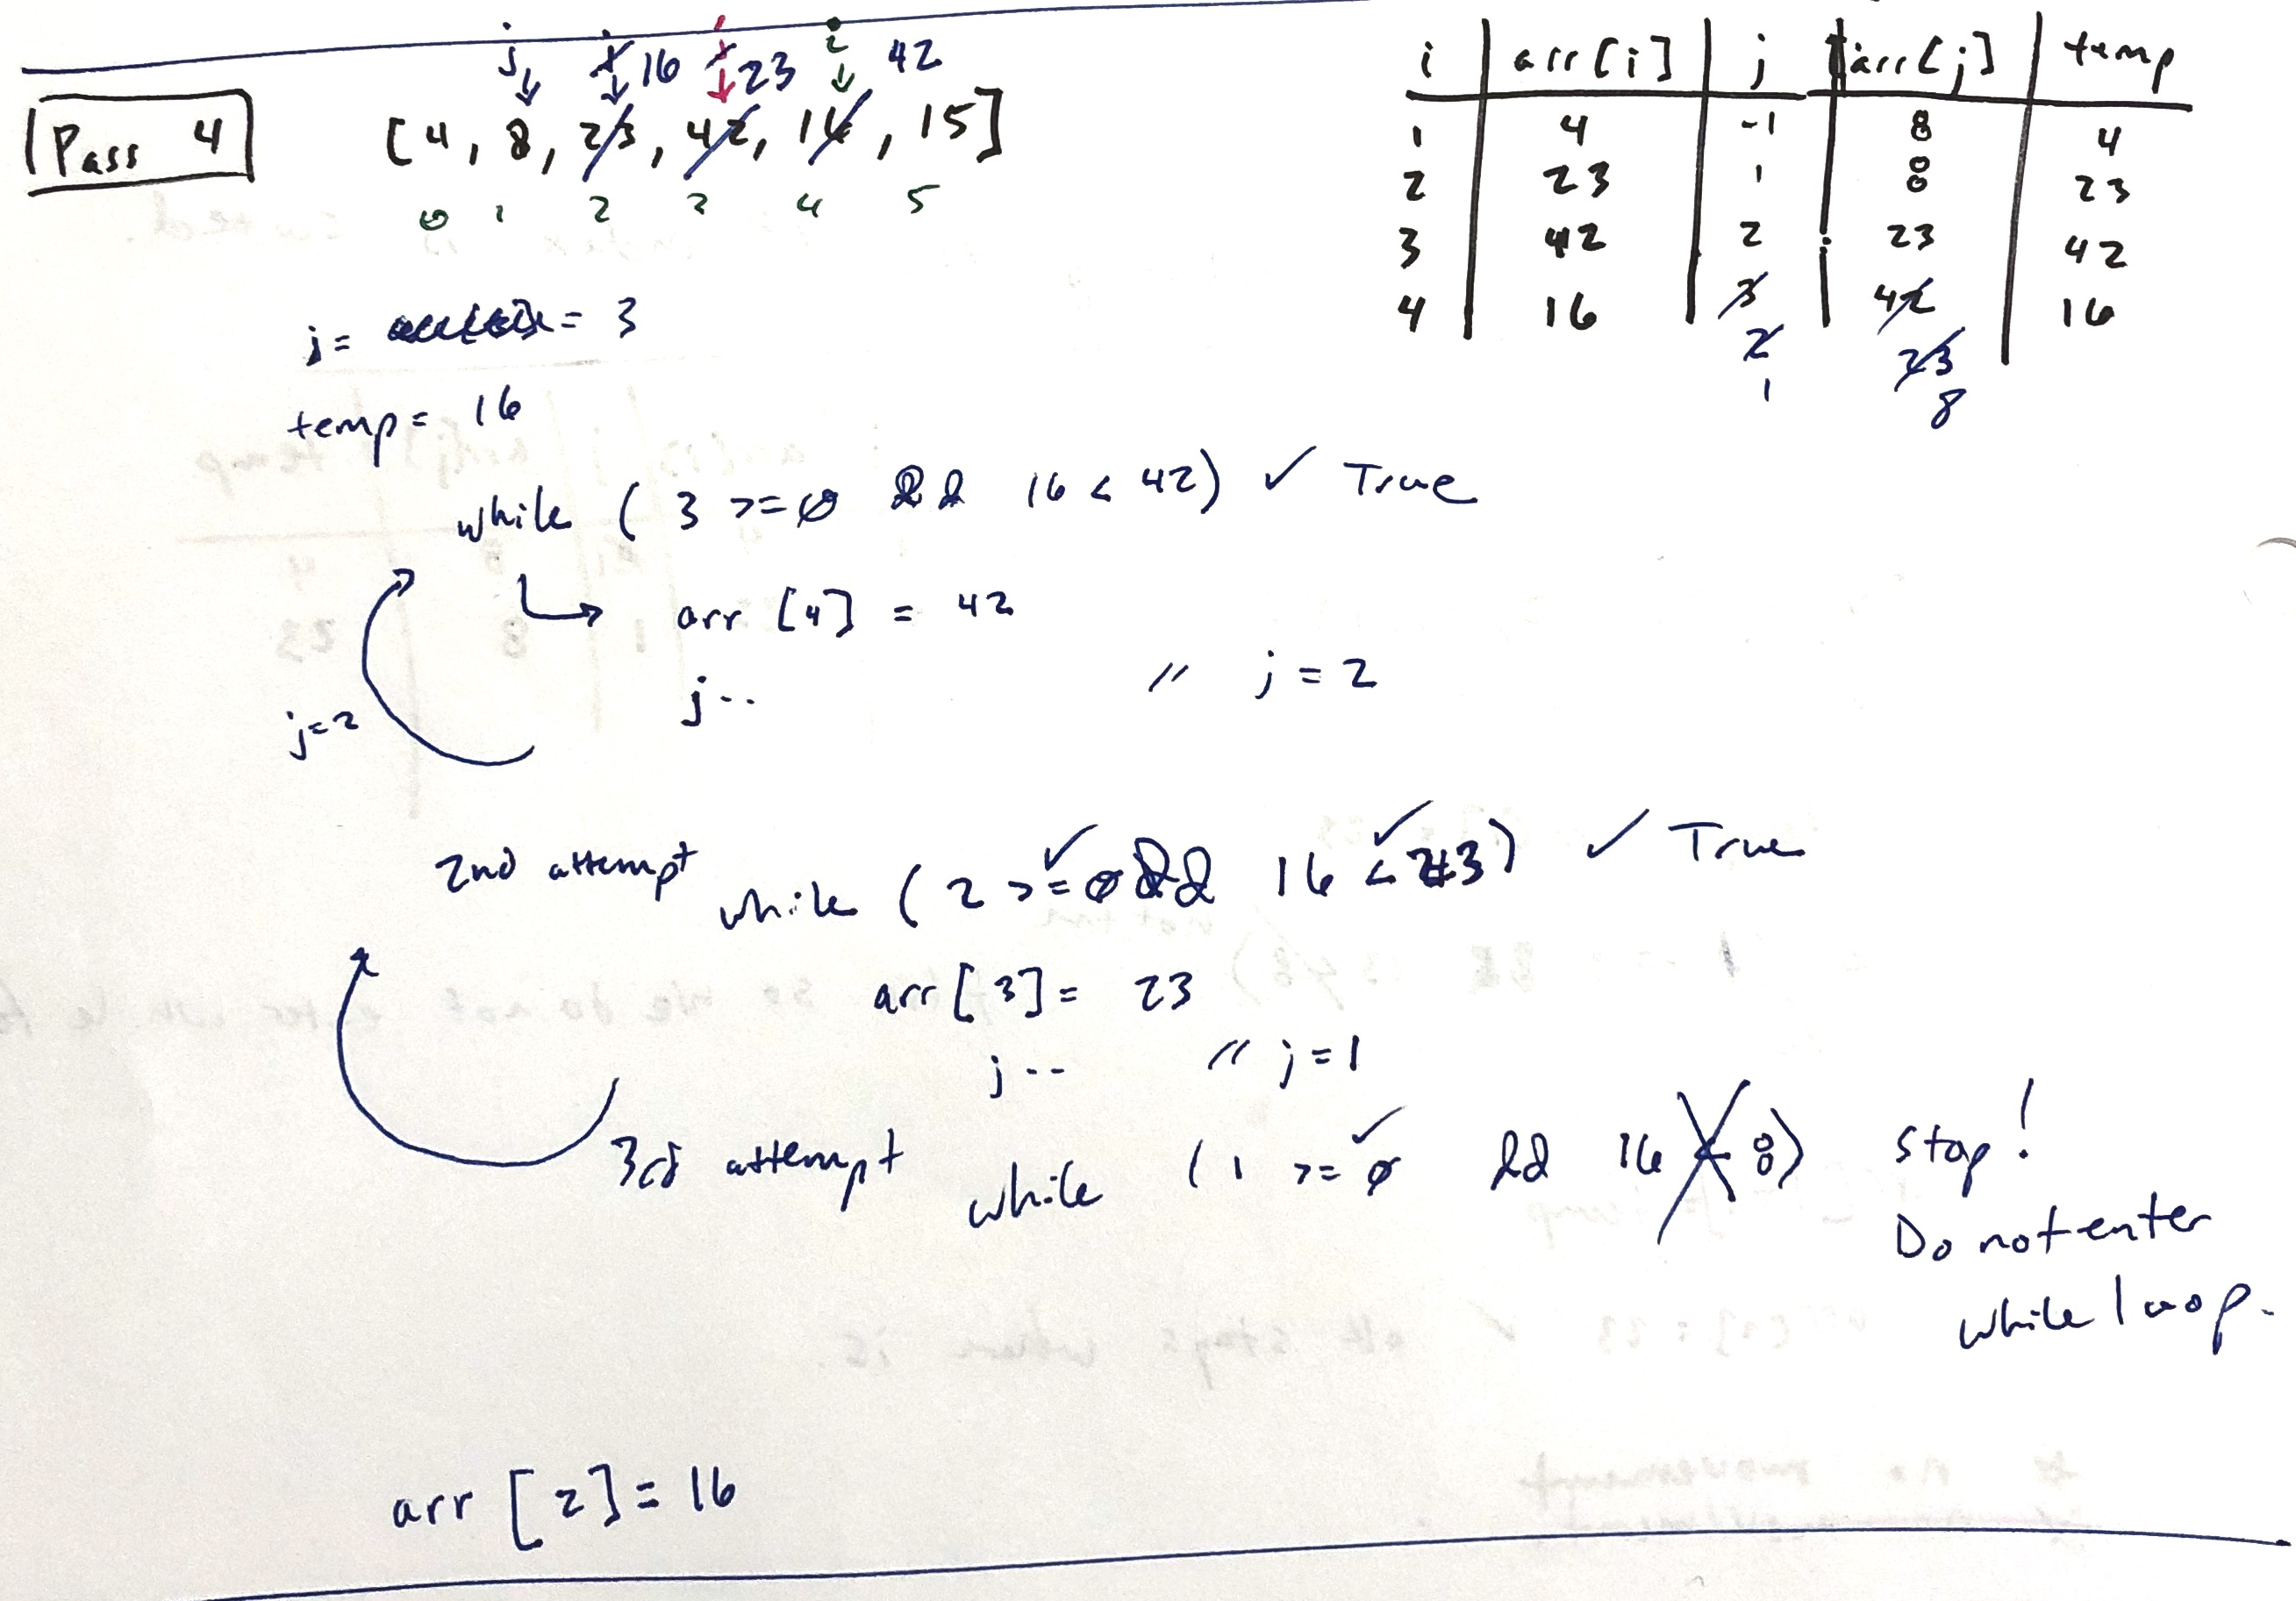 j 1 16 1 23 i 42
Pass 4 [4, 8, 23, 42, 16, 15]
0 1 2 3 4 5
i arr[i] j arr[j] temp
1 4 -1 8 4
2 23 1 8 23
3 42 2 23 42
4 16 3 42 16
2 23
1 8
j = = 3
temp = 16
while ( 3 >= 0 && 16 < 42) ✓ True
arr [4] = 42
j-- // j = 2
j=2
2nd attempt while ( 2 >= 0 && 16 < 23) ✓ True
arr [3] = 23
j-- // j=1
3rd attempt while ( 1 >= 0 && 16 < 8) stop!
Do not enter
while loop.
arr [2] = 16